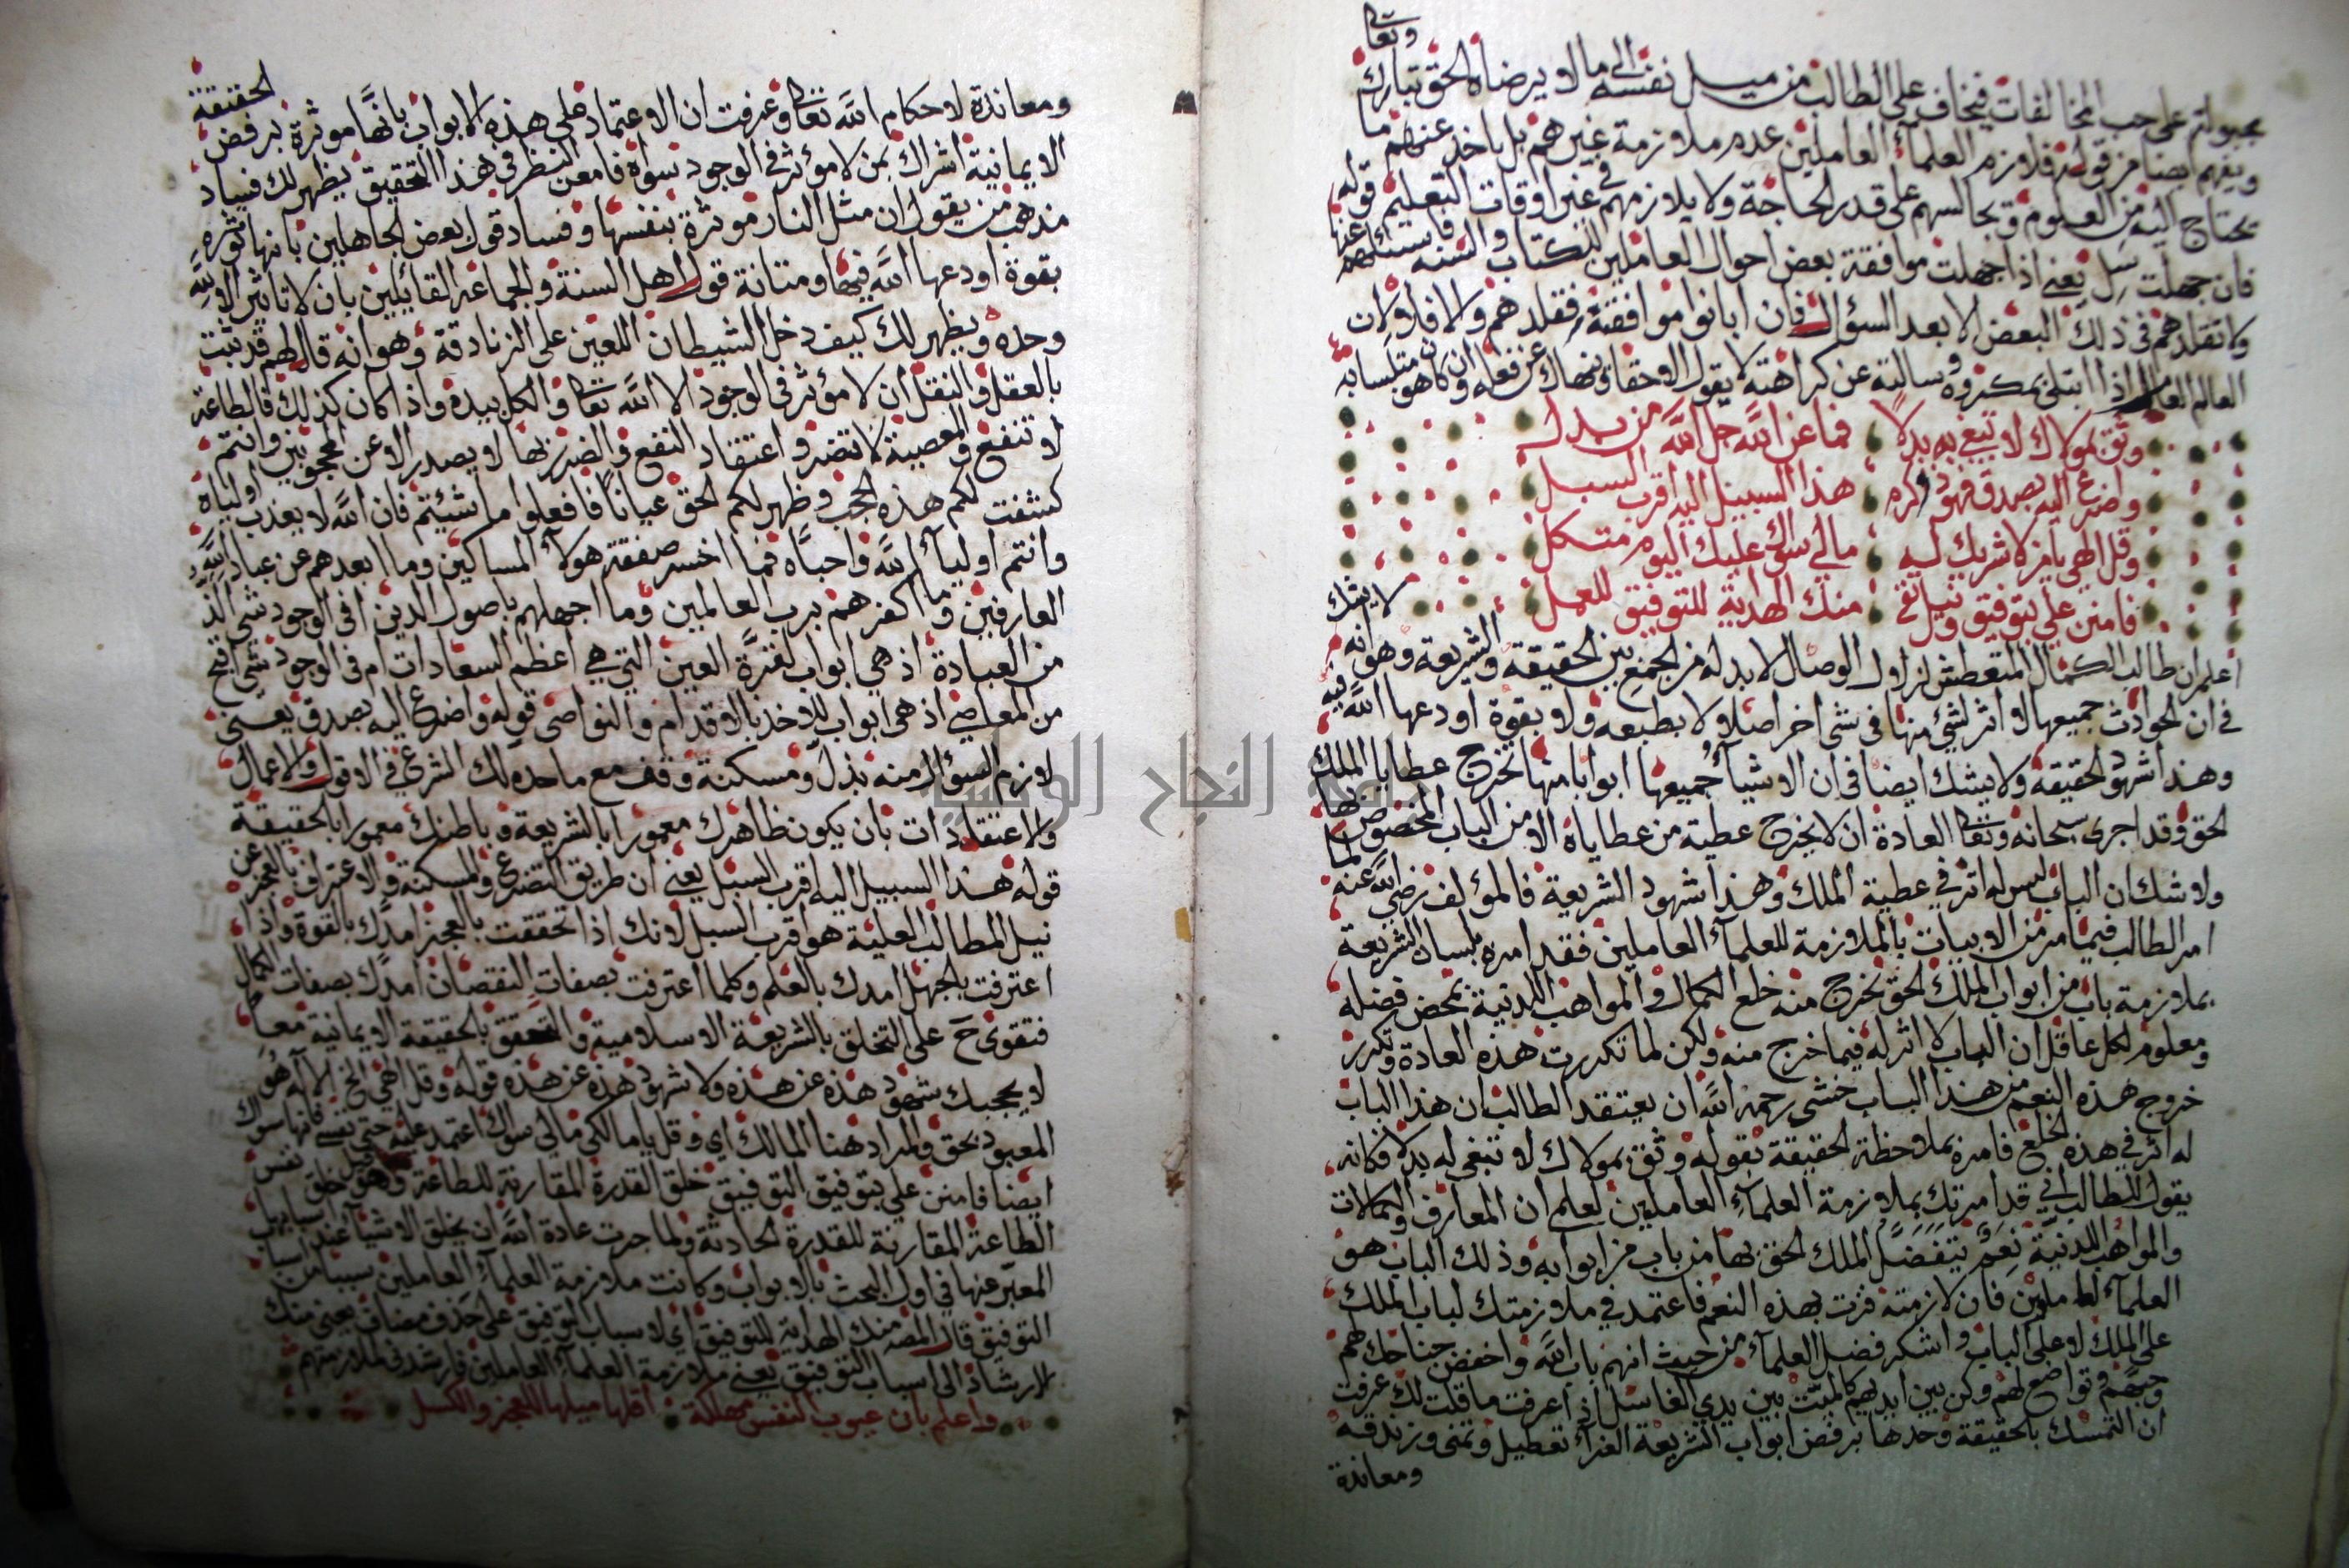 وتعالى
مجبولة على حب المخالفات فيخاف على الطالب من ميل نفسه الى ما لا يرضاه الحق تبارك
ويفهم ايضا من قوله فلازم العلمآء العاملين عدم ملازمة غيرهم بل ياخذ عنهم ما
يحتاج اليه من العلوم ويجالسهم على قدر الحاجة ولا يلازمهم في غير اوقات التعليم قوله
فان جهلت سل يعني اذا جهلت موافقة بعض احوال العاملين للكتاب والسنه فاسئلهم عنها
ولا تقلدهم في ذلك البعض الا بعد السؤال فان ابانوا موافقته فقلدهم والا فلا ولان
العالم العامل اذا ابتلى بمكروه وسالته عن كراهته لا يقول الا حقا وينهاك عن فعله وان كان هو متلبسا به
وثق بمولاك لا تبغي به بدلا فما عن الله جل الله من بدل
واضرع اليه بصدق فهو ذو كرم هذا السبيل اليه اقرب السبل
وقل الهي يا من لا شريك له مالي سواك عليك اليوم متكل
فامنن علي بتوفيق ونيل تقى منك الهداية للتوفيق للعمل
لا يشك
اعلم ان طالب الكمال المتعطش لزلال الوصال لا بد له من الجمع بين الحقيقة والشريعة وهو انه
في ان الحوادث جميعها لا اثر لشيء منها في شيء اخر اصلا ولا بطبعه ولا بقوة اودعها الله فيه
وهذا شهود الحقيقة ولا يشك ايضا في ان الاشيآء جميعها ابوابا منها تخرج عطايا الملك
الحق وقد اجرى سبحانه وتعالى العادة ان لا يخرج عطية من عطاياه الا من الباب المخصوص لها
ولا شك ان الباب ليس له اثر في عطية الملك وهذا شهود الشريعة فالمؤلف رضي الله عنه لما
امر الطالب فيما مر من الابيات بالملازمة للعلمآء العاملين فقد امره بلسان الشريعة
بملازمة باب من ابواب الملك الحق يخرج منه خلع الكمال والمواهب اللدنية بمحض فضله
ومعلوم لكل عاقل ان الباب لا اثر له فيما خرج منه ولكن لما تكررت هذه العادة وتكرر
خروج هذه النعم من هذا الباب خشي رحمه الله ان يعتقد الطالب ان هذا الباب
له اثر في هذه الخلع فامره بملاحظة الحقيقة بقوله وثق بمولاك لا تبغي له بدلا فكانه
يقول للطالب اني قد امرتك بملازمة العلمآء العاملين لعلم ان المعارف والكمالات
والمواهب اللدنية نعم يتفضل الملك الحق بها من باب من ابوابه وذلك الباب هو
العلمآء العاملين فان لازمته فزت بهذه النعم فاعتمد في ملازمتك لباب الملك
على الملك لا على الباب واشكر فضل العلمآء من حيث انهم باب الله واخفض جناحك لهم
وحبهم وتواضع لهم وكن بين ايديهم كالميت بين يدي الغاسل اذا عرفت ما قلت لك عرفت
ان التمسك بالحقيقة وحدها برفض ابواب الشريعة الغرآء تعطيل وتمني وزندقه
ومعاندة
الحقيقة
ومعاندة لاحكام الله تعالى وعرفت ان الاعتماد على هذه الابواب بانها موثرة برفض
الايمانية اشراك بمن لا مؤثر في الوجود سواه فامعن النظر في هذا التحقيق يظهر لك فساد
مذهب من يقول ان مثل النار موثرة بنفسها وفساد قول بعض الجاهلين بانها توثر
بقوة اودعها الله فيها ومتانة قول اهل السنة والجماعة القائلين بان لا تاثير الا لله
وحده ويظهر لك كيف دخل الشيطان اللعين على الزنادقة وهو انه قال لهم قد ثبت
بالعقل والنقل ان لا مؤثر في الوجود الا الله تعالى والكل بيده واذا كان كذلك فالطاعة
لا تنفع والمعصية لا تضر واعتقاد النفع والضر بها لا يصدر الا عن المحجوبين وانتم
كشفت لكم هذه الحجب وظهر لكم الحق عيانا فافعلوا ما شيئتم فان الله لا يعذب اولياه
وانتم اوليآء لله واحباه فما اخسر صفقة هولآء المساكين وما ابعدهم عن عباد الله
العارفين وما اكفرهم برب العالمين وما اجهلهم باصول الدين افي الوجود شي الذ
من العبادة اذ هي ابواب لقرة العين التي هي اعظم السعادات ام في الوجود شي اقبح
من المعاصي اذ هي ابواب للاخذ بالاقدام والنواصي قوله واضرع اليه بصدق يعني
لازم السؤال منه بذل ومسكنة وقف مع ما حده لك الشرع في الاقوال والاعمال
والاعتقادات بان يكون ظاهرك معمورا بالشريعة وباطنك معمورا بالحقيقة
قوله هذا السبيل اليه اقرب السبل يعني ان طريق التضرع والمسكنة والاعتراف بالعجز عن
نيل المطالب العلية هو اقرب السبل لانك اذا تحققت بالعجز امدك بالقوة واذا
اعترفت بالجهل امدك بالعلم وكلما اعترفت بصفات النقصان امدك بصفات الكمال
فتقوى ح على التخلق بالشريعة الاسلامية والتحقق بالحقيقة الايمانية معا
لا يحجبك شهود هذه عن هذه ولا شهود هذه عن هذه قوله وقل الهي الخ الاله هو
المعبود بحق والمراد هنا المالك اي وقل يا مالكي مالي سواك اعتمد عليه حتى نفسي فانها سواك
ايضا فامنن علي بتوفيق التوفيق خلق القدرة المقارنة للطاعة وقيل هو خلق نفس
الطاعة المقارنة للقدرة الحادثة ولما جرت عادة الله ان يخلق الاشيآء عند اسبابها
المعبر عنها في اول البحث بالابواب وكانت ملازمة العلمآء العاملين سببا من اسباب
التوفيق قال المص منك الهداية للتوفيق اي لاسباب التوفيق على حذف مضاف يعني منك
الارشاد الى اسباب التوفيق يعني ملازمة العلمآء العاملين فارشدني لملازمتهم
واعلم بان عيوب النفس مهلكة اقلها ميلها للعجز والكسل